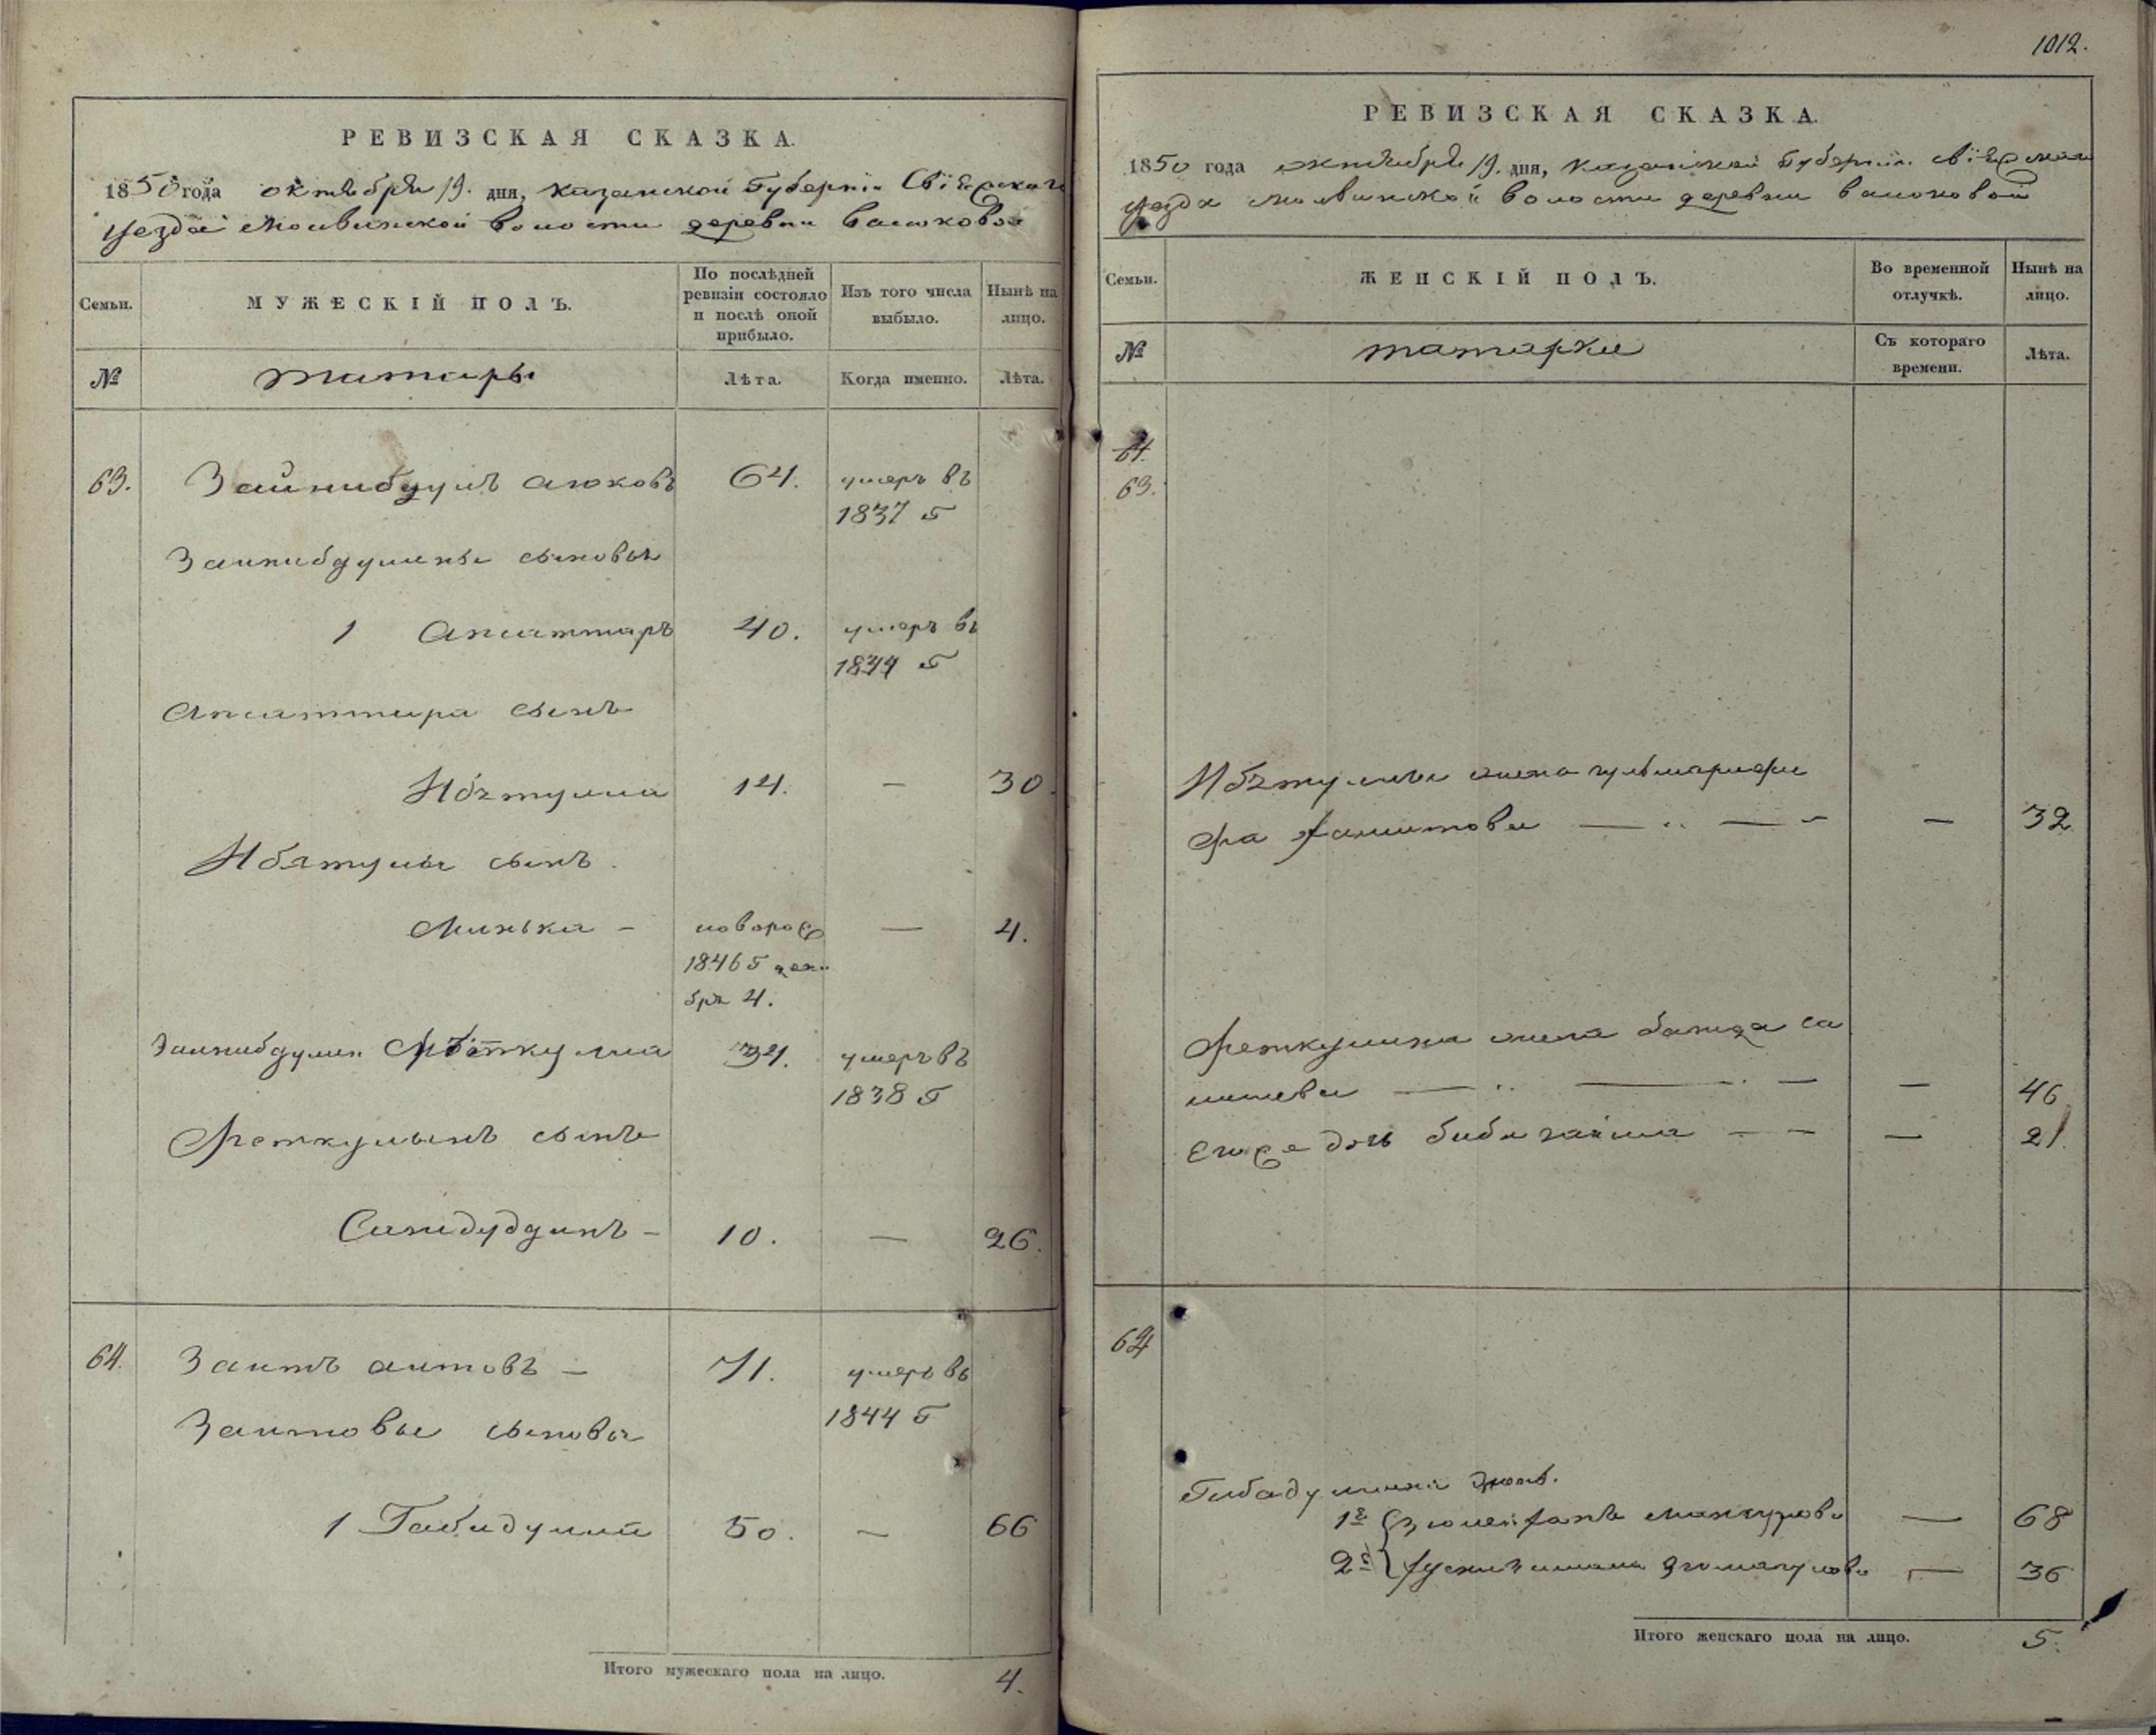 РЕВИЗСКАЯ СКАЗКА.
1850 года октября 19. дня, Казанской Губернiи Свiяжскаго
уезда Молвинской волости деревни Васюковой
Семьи.
МУЖЕСКІЙ ПОЛЪ.
По послѣдней ревизіи состояло и послѣ оной прибыло.
Изъ того числа выбыло.
Нынѣ на лицо.
№
татары
Лѣта.
Когда именно.
Лѣта.
63. Зайнибдулъ аюковъ 64. умеръ въ
1837 г
Заинибдулины сыновья
1 Апсаттаръ 40. умеръ въ
1844 г
Апсаттара сынъ
Ибятулла 14. — 30.
Ибятулы сынъ.
Минька – новорож 4.
1846 г дека
бря 4.
Заинибдулин Фѣткулла 34. умеръ въ
1838 г
Феткулынъ сынъ
10. — 26.
64. Заитъ аитовъ — 71. умеръ въ
1844 г
Заитовы сыновья
1 Габидулла 50. — 66
Итого мужескаго пола на лицо. 4.
1012.
РЕВИЗСКАЯ СКАЗКА.
1850 года октября 19. дня, Казанской Губернiи. Свiяжскаго
уезда Молвинской волости деревни Васюковой
Семьи.
ЖЕНСКІЙ ПОЛЪ.
Во временной отлучкѣ.
Нынѣ на лицо.
№
татарки
Съ котораго времени.
Лѣта.
64.
63.
Ибятуллы жена
фа Хамитова — — — 32
Феткулина жена
— — — 46
Ея же дочь — — — 21.
64
Габадуллины жены.
1я — 68
2я — 36
Итого женскаго пола на лицо. 5.